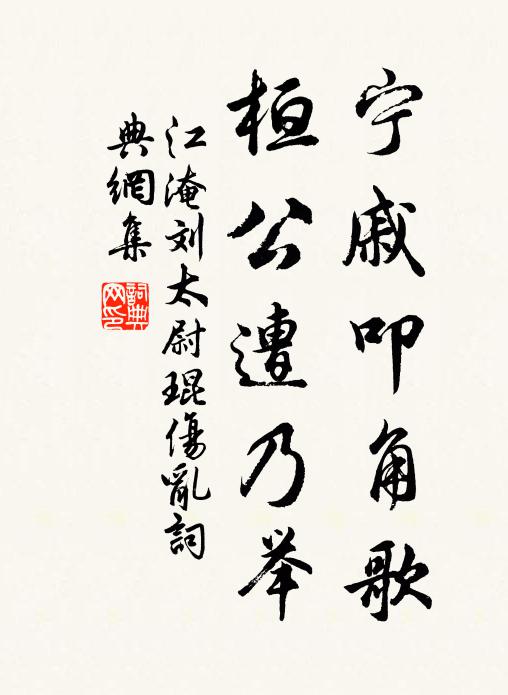 宁戚叩角歌
桓公遭乃举
江淹刘太尉琨傷亂詞
典網集
詞典
网印